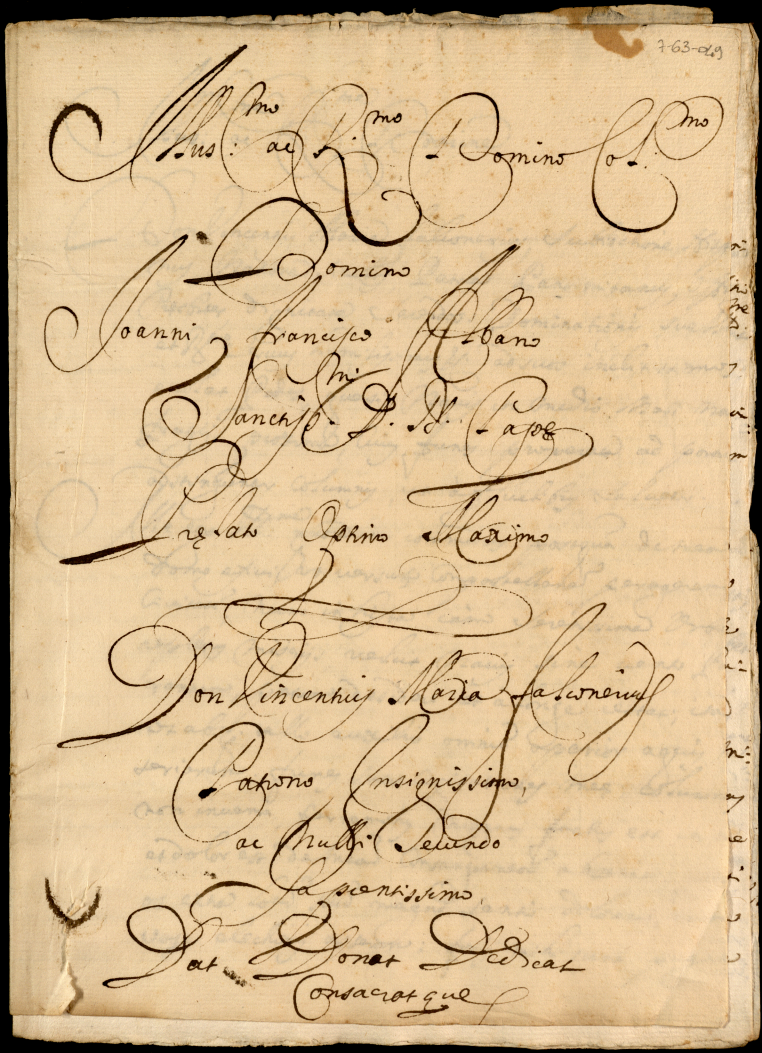 7-63-029
Illus:mo ac R.mo Domino Col:mo
Domino
Joanni Francisco Albano
Sanctiss.mi D. N. Papę
Pręlato Optimo Maximo
Don Vincentius Maria Falconeius
Patrono Insignissimo,
ac Nulli Secundo
Sapientissimo
Dat Donat Dedicat
Consacratque